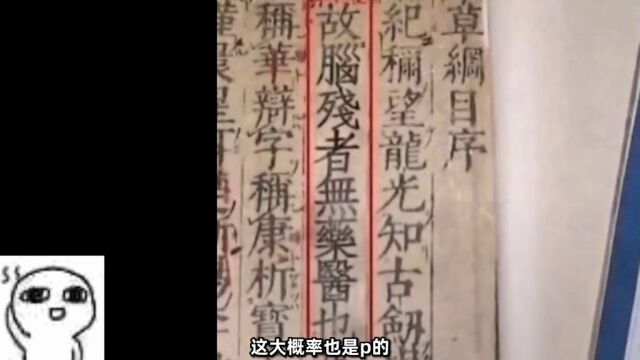 草綱目序
紀稱望龍光知古劒
故腦殘者無藥醫也
稱華辯字稱康析寶
这大概率也是p的